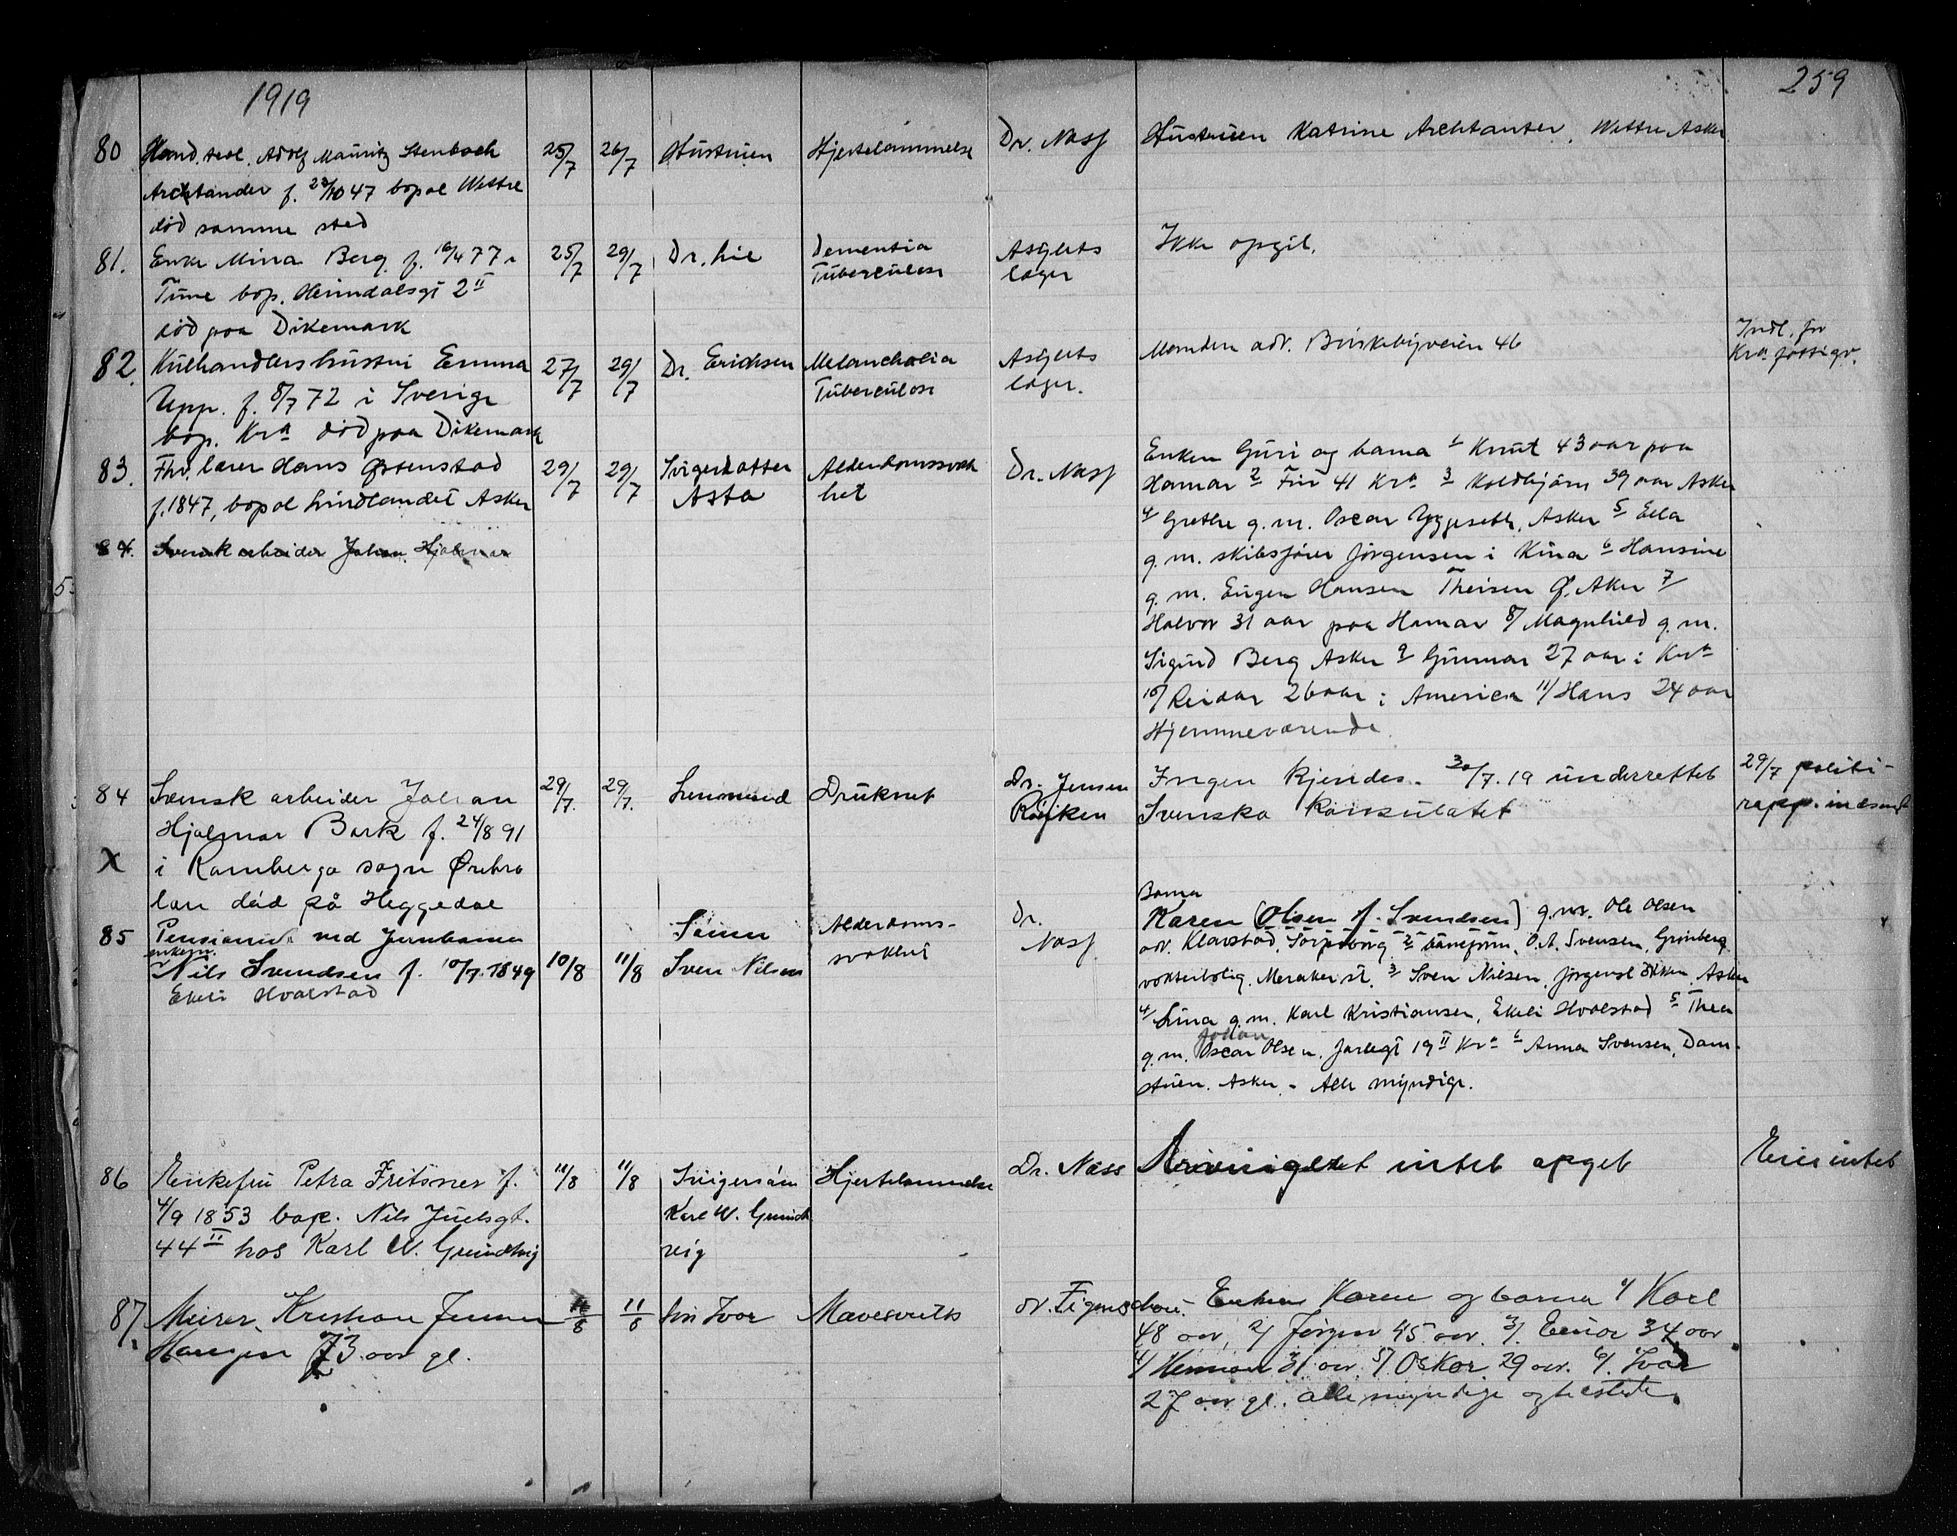 1919
259
80 Hand.
Adolf Mauritz Stenbock
Archtander f. 23/10 47 bopæl Wettre
død samme sted
25/7 26/7 Hustruen Hjertelammelse Dr. Næss Hustruen Katrine Archtander, Wettre Asker
81. Enke Mina Berg. f. 10/4 77 i
Tune bop. Heimdalsgt 2 II
død paa Dikemark
25/7 29/7 Dr. Lie Dementia
Tuberculose
Asylets
læger
Ikke opgit.
82. Kulhandlershustru Emma
Upp. f. 8/7 72 i Sverige
bop. Kra død paa Dikemark
27/7 29/7 Dr. Ericksen Melancholia
Tuberculose
Asylets
læger.
Manden adr. Briskebyveien 46
Indl. for
Kra fattigv.
83. Fhv. lærer Hans Østenstad
f. 1847, bopæl Lindlandet Asker
29/7 29/7 Svigerdatter
Asta
Alderdomssvak
het
Dr. Næss
Enken Guri og barna 1 Knut 43 aar paa
Hamar 2 Finn 41 Kra 3 Koldbjørn 39 aar Asker
4/ Grethe g. m. Oscar Yggeseth, Asker 5 Ella
g. m. skibsfører Jørgensen i Kina 6 Hansine
g. m. Eugen Hansen Theisen Ø. Aker 7/
Halvor 31 aar paa Hamar 8/ Magnhild g. m.
Sigurd Berg Asker 9 Gunnar 27 aar i Kra
10/ Reidar 26 aar i America 11/ Hans 24 aar
Hjemmeværende.
84. Svensk arbeider Johan Hjalmar
84 Svensk arbeider Johan
Hjalmar Bark f. 24/8 91
X i Ramberga sogn Ørebro
len död på Heggedal
29/7. 29/7. Lensmand Druknet Dr. Jensen
Røyken
Ingen kjendes. 30/7. 19 underrettet
Svenska Konsulatet
29/7 politi-
rapp. indsendt
85 Pensioneret ved Jernbanen
enkem.
Nils Svendsen f. 10/7. 1849
Ekeli Hvalstad
10/8 11/8 Sønnen
Sven Nilsen
Alderdoms-
svakhet
Dr.
Næss
Barna
Karen (Olsen f. Svendsen) g.m. Ole Olsen
adr. Klavstad, Sarpsborg 2 baneform. O. A. Svensen, Grønberg
vokterbolig, Meraker st. 3 Sven Nilsen, Asker
4/ Lina g. m. Karl Kristiansen, Ekeli Hvalstad 5 Thea
Johan
g. m. Oscar Olsen, Jarlegt 19 II Kra 6 Anna Svensen, Dam-
stuen. Asker. - Alle myndige.
86 Enkefru Petra Fritsner f.
4/9 1853 bop. Nils Juelsgt.
44 II hos Karl W. Grundtvig
11/8 11/8 Svigersøn
Karl W. Grundt
vig
Hjertelammelse Dr. Næss
intet opget
Eier intet
87. Murer, Kristian Jensen
Hansen 73 aar gl.
11/8 11/8 Ivar Mavesvulst
Enken Karen og barna 1/ Karl
48 aar, 2/ Jørgen 45 aar. 3/. Einar 34 aar
4/ Herman 31 aar. 5/. Oskar 29 aar. 6/. Ivar
27 aar gl. alle myndige og tilstede.